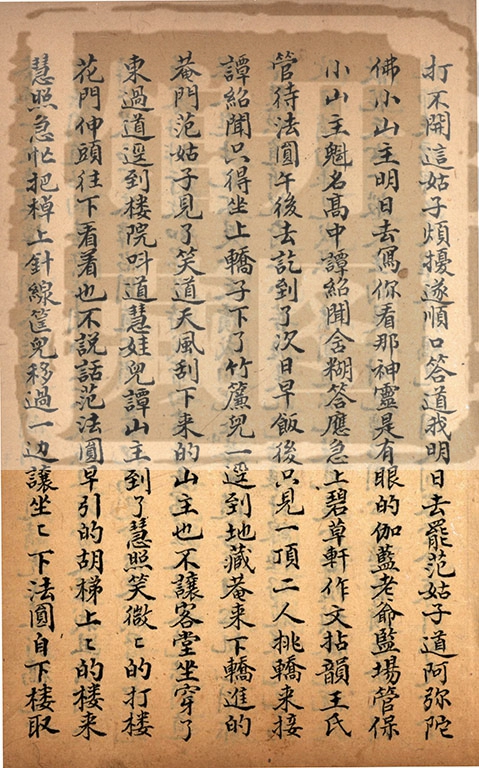 打不開這姑子煩擾遂順口答道我明日去罷范姑子道阿弥陀
佛小山主明日去寫你看那神靈是有眼的伽藍老爺監場管保
小山主魁名髙中譚紹聞含糊答應急上碧草軒作文拈韻王氏
管待法圓午後去訖到了次日早飯後只見一頂二人挑轎来接
譚紹聞只得坐上轎子下了竹簾兒一逕到地藏菴来下轎進的
菴門范姑子見了笑道天風刮下来的山主也不讓客堂坐穿了
東過道逕到楼院呌道慧娃兒譚山主到了慧照笑微〻的打楼
花門伸頭徃下看看也不説話范法圓早引的胡梯上〻的楼来
慧照急忙把棹上針線筐兒移過一边讓坐〻下法圓自下楼取